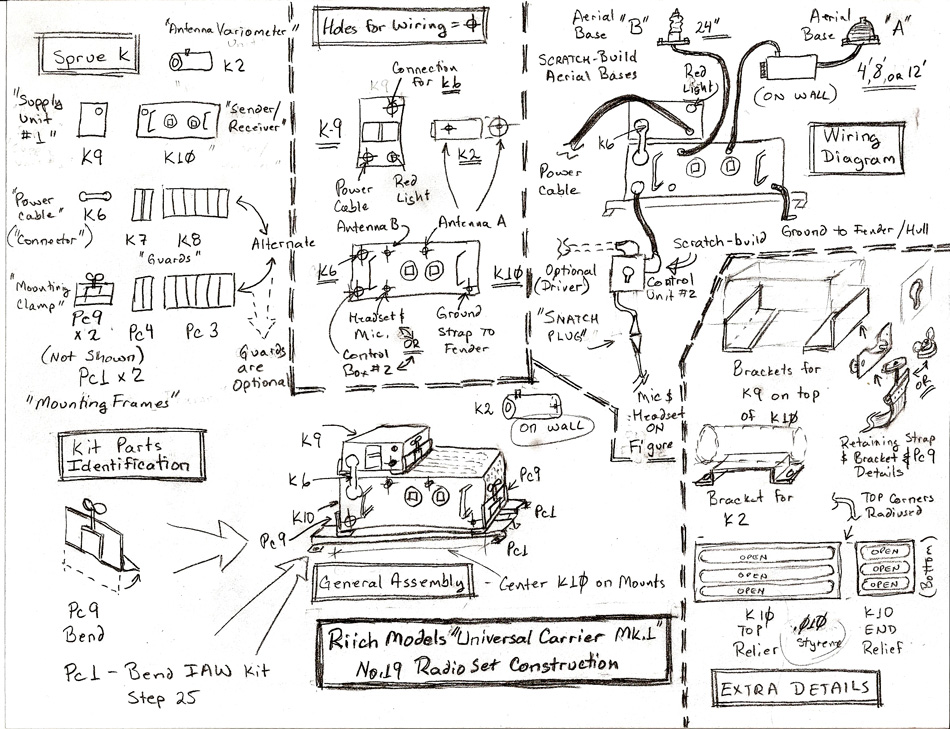 Sprue K
"Antenna Variometer"
Unit
K2
"Supply
Unit
#1"
K9
K1Ø
"Sender/
Receiver"
"Power
Cable"
("Connector")
K6
K7
K8
"Guards"
Alternate
"Mounting
Clamp"
Pc9
x 2
(Not Shown)
Pc4
Pc3
Pc1 x 2
"Mounting Frames"
Guards
are
Optional
Kit Parts
Identification
Pc9
Bend
Pc1 - Bend IAW Kit
Step 25
Holes for Wiring =
Connection
for K6
K9
K-9
K2
Power
Cable
Red
Light
Antenna B
Antenna A
K6
K1Ø
Headset &
Mic.
OR
Control
Box #2
Ground
Strap to
Fender
K2
on Wall
K9
K6
K1Ø
Pc9
Pc9
Pc1
Pc1
General Assembly
- Center K1Ø on Mounts
Riich Models "Universal Carrier Mk.1"
No.19 Radio Set Construction
Aerial
Base "B"
24"
Aerial
Base "A"
4', 8', or 12'
Scratch-Build
Aerial Bases
Red
Light
(on Wall)
K6
Wiring
Diagram
Power
Cable
Ground to Fender/Hull
Scratch-build
Control
Unit #2
Optional
(Driver)
"Snatch
Plug"
Mic &
Headset
on
Figure
Brackets for
K9 on top
of K1Ø
OR
Retaining Strap
& Bracket & Pc9
Details
Bracket for
K2
Top Corners
Radiused
OPEN
OPEN
OPEN
OPEN
OPEN
OPEN
(Bottom)
K1Ø
Top
Relier
.Ø1Ø
Styrene
K1O
END
Relief
EXTRA DETAILS